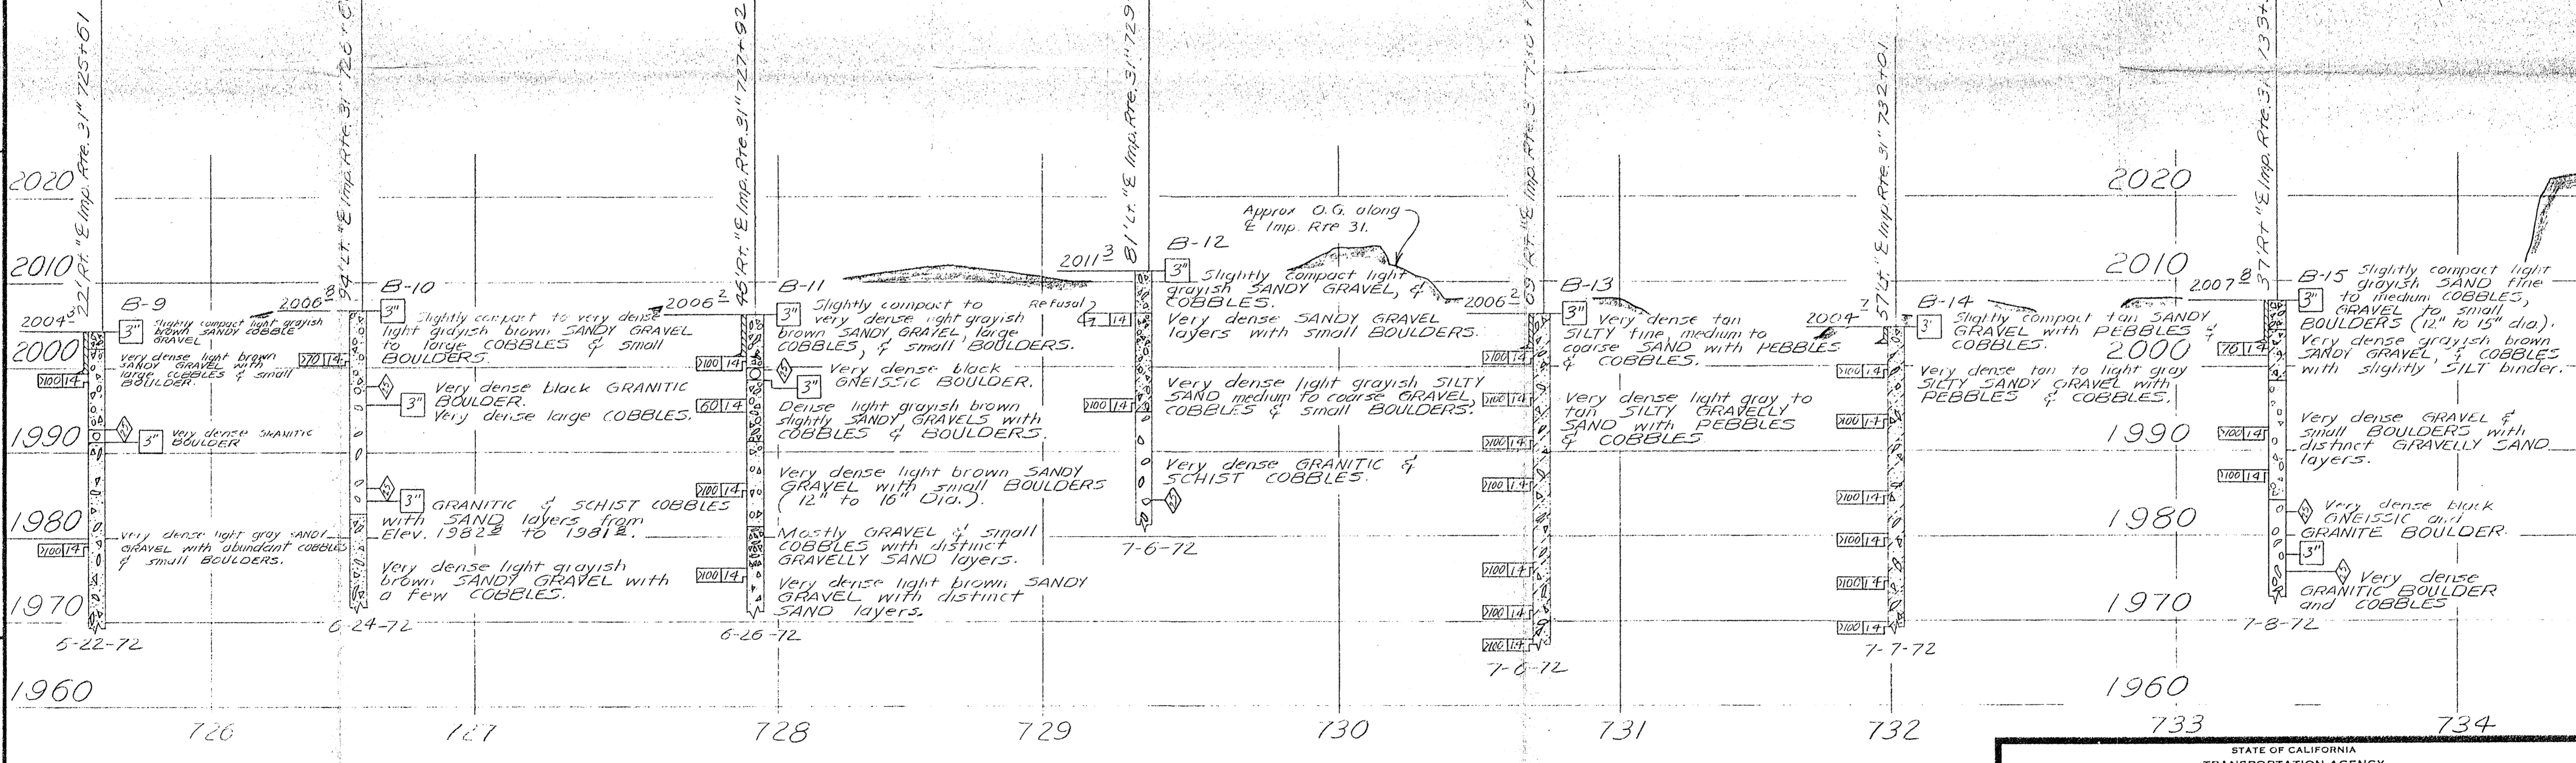 22' Rt. "℄ Imp. Rte. 31" 725+61
94' Lt. "℄ Imp. Rte. 31"
45' Rt. "℄ Imp. Rte. 31" 727+92
81' Lt. "℄ Imp. Rte. 31" 729
69' Rt. "℄ Imp. Rte. 31" 730+
57' Lt. "℄ Imp. Rte. 31" 732+01
37' Rt. "℄ Imp. Rte. 31" 733+
2020
2010
2000
1990
1980
1970
1960
B-9
2004 3
3"
Slightly compact light grayish
brown SANDY COBBLE
GRAVEL
Very dense light brown
SANDY GRAVEL with
large COBBLES & small
BOULDER.
>100 1.4
3"
Very dense GRANITIC
BOULDER
Very dense light gray SANDY
GRAVEL with abundant COBBLES
& small BOULDERS.
>100 1.4
6-22-72
B-10
2006 8
3"
Slightly compact to very dense
light grayish brown SANDY GRAVEL
to large COBBLES & small
BOULDERS.
>70 1.4
Very dense black GRANITIC
BOULDER.
3"
Very dense large COBBLES.
3"
GRANITIC & SCHIST COBBLES
with SAND layers from
Elev. 1982 8 to 1981 8.
Very dense light grayish
brown SANDY GRAVEL with
a few COBBLES.
6-24-72
B-11
2006 2
3"
Slightly compact to
very dense light grayish
brown SANDY GRAVEL large
COBBLES, & small BOULDERS.
>100 1.4
Very dense black
GNEISSIC BOULDER.
3"
60 1.4
Dense light grayish brown
slightly SANDY GRAVELS with
COBBLES & BOULDERS.
Very dense light brown SANDY
GRAVEL with small BOULDERS
(12" to 16" Dia.).
>100 1.4
Mostly GRAVEL & small
COBBLES with distinct
GRAVELLY SAND layers.
>100 1.4
Very dense light brown SANDY
GRAVEL with distinct
SAND layers.
6-26-72
B-12
2011 3
3"
Slightly compact light
grayish SANDY GRAVEL, &
COBBLES.
Refusal
1.4
Very dense SANDY GRAVEL
layers with small BOULDERS.
Very dense light grayish SILTY
SAND medium to coarse GRAVEL,
COBBLES & small BOULDERS.
>100 1.4
Very dense GRANITIC &
SCHIST COBBLES.
7-6-72
Approx O.G. along
℄ Imp. Rte 31.
B-13
2006 2
3"
Very dense tan
SILTY fine medium to
coarse SAND with PEBBLES
& COBBLES.
>100 1.4
Very dense light gray to
tan SILTY GRAVELLY
SAND with PEBBLES
& COBBLES.
>100 1.4
>100 1.4
>100 1.4
>100 1.4
>100 1.4
>100 1.4
7-6-72
B-14
2004 7
3"
Slightly compact tan SANDY
GRAVEL with PEBBLES &
COBBLES.
>100 1.4
Very dense tan to light gray
SILTY SANDY GRAVEL with
PEBBLES & COBBLES.
>100 1.4
>100 1.4
>100 1.4
>100 1.4
>100 1.4
7-7-72
2020
2010
2000
1990
1980
1970
1960
B-15
2007 8
3"
Slightly compact light
grayish SAND fine
to medium COBBLES,
GRAVEL to small
BOULDERS (12" to 15" dia.).
76 1.4
Very dense grayish brown
SANDY GRAVEL, & COBBLES
with slightly SILT binder.
>100 1.4
Very dense GRAVEL &
small BOULDERS with
distinct GRAVELLY SAND
layers.
>100 1.4
Very dense black
GNEISSIC and
GRANITE BOULDER.
3"
Very dense
GRANITIC BOULDER
and COBBLES
7-8-72
726 727 728 729 730 731 732 733 734
STATE OF CALIFORNIA
TRANSPORTATION AGENCY